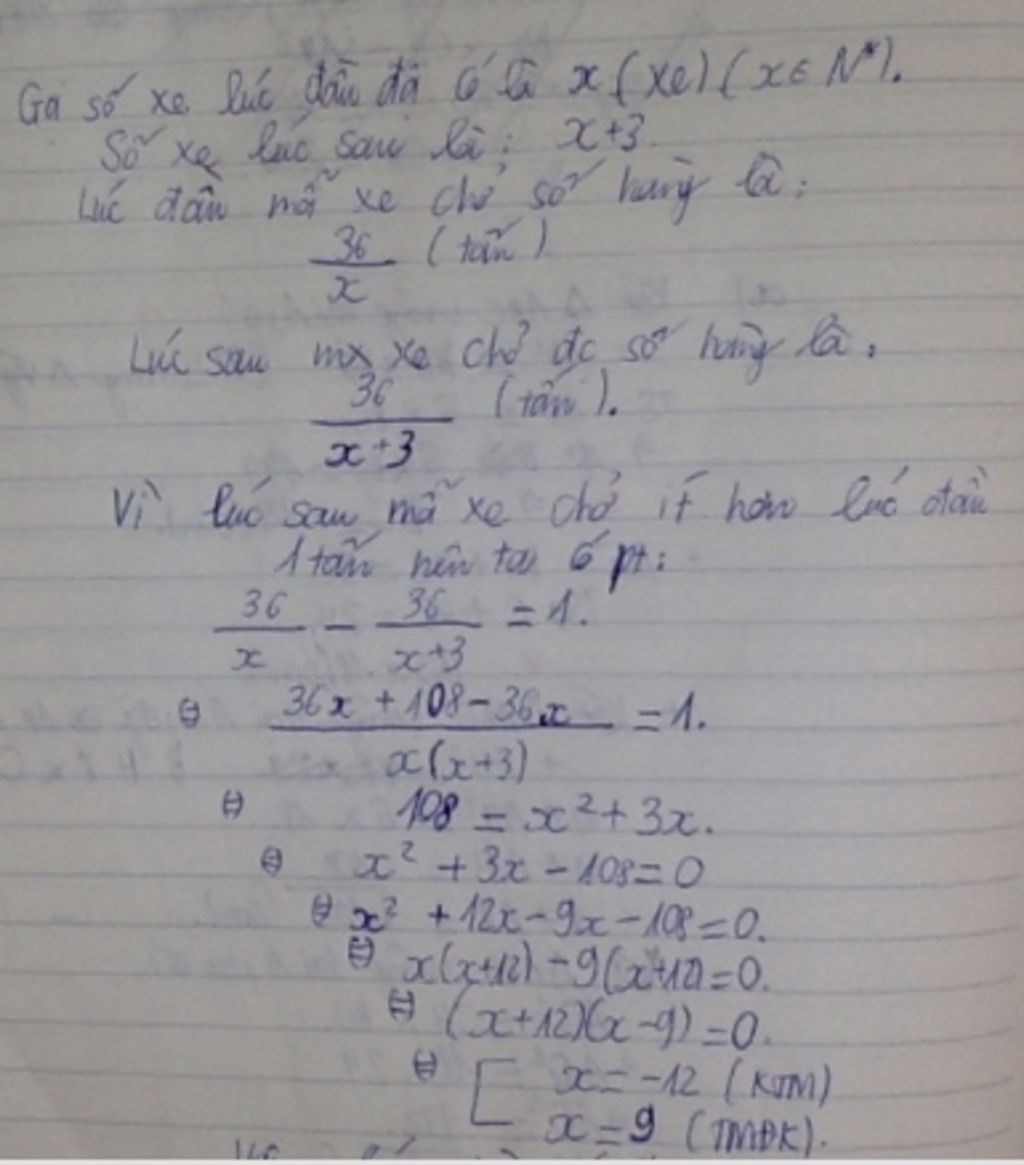 Gọi số xe lúc đầu đã có là x (xe) (x ∈ N*).
Số xe lúc sau là: x+3.
Lúc đầu mỗi xe chở số hàng là:
36/x (tấn)
Lúc sau mx xe chở đc số hàng là:
36/(x+3) (tấn).
Vì lúc sau mỗi xe chở ít hơn lúc đầu
1 tấn nên ta có pt:
36/x - 36/(x+3) = 1.
⇔ (36x + 108 - 36x)/(x(x+3)) = 1.
⇔ 108 = x² + 3x.
⇔ x² + 3x - 108 = 0
⇔ x² + 12x - 9x - 108 = 0.
⇔ x(x+12) - 9(x+12) = 0.
⇔ (x+12)(x-9) = 0.
⇔ [ x = -12 (KTM)
x = 9 (TMĐK).